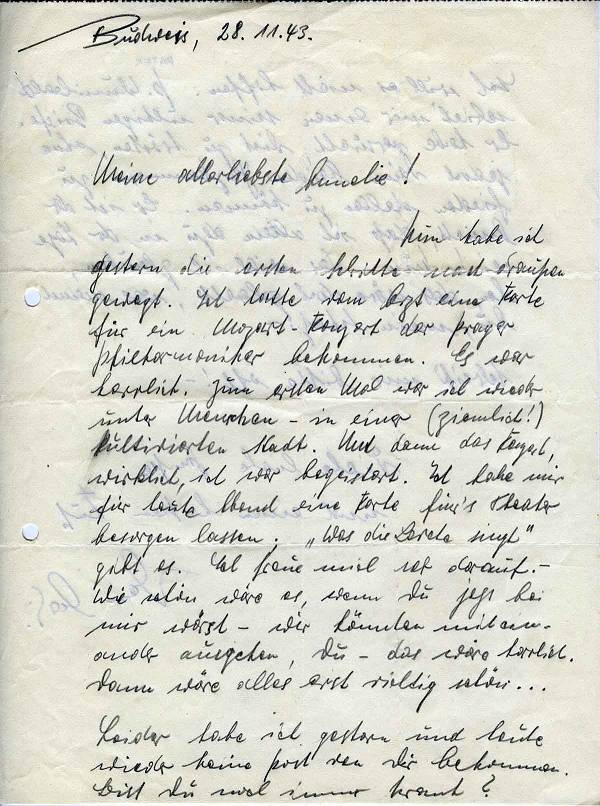 Budweis, 28.11.43.
Meine allerliebste Annelie!
Nun habe ich
gestern die ersten Schritte nach draußen
gewagt. Ich hatte vom Arzt eine Karte
für ein Mozart-Konzert der Prager
Philharmoniker bekommen. Es war
herrlich. Zum ersten Mal war ich wieder
unter Menschen – in einer (ziemlich!)
kultivierten Stadt. Und dann das Konzert,
wirklich, ich war begeistert. Ich habe mir
für heute Abend eine Karte für's Theater
besorgen lassen. „Was die
gibt es. Ich freue mich sehr darauf. –
Wie schön wäre es, wenn Du jetzt bei
mir wärst – wir könnten mitein-
ander ausgehen, Du – das wäre herrlich.
Dann wäre alles erst richtig schön...
Leider habe ich gestern und heute
wieder keine Post von Dir bekommen.
Bist Du noch immer krank?